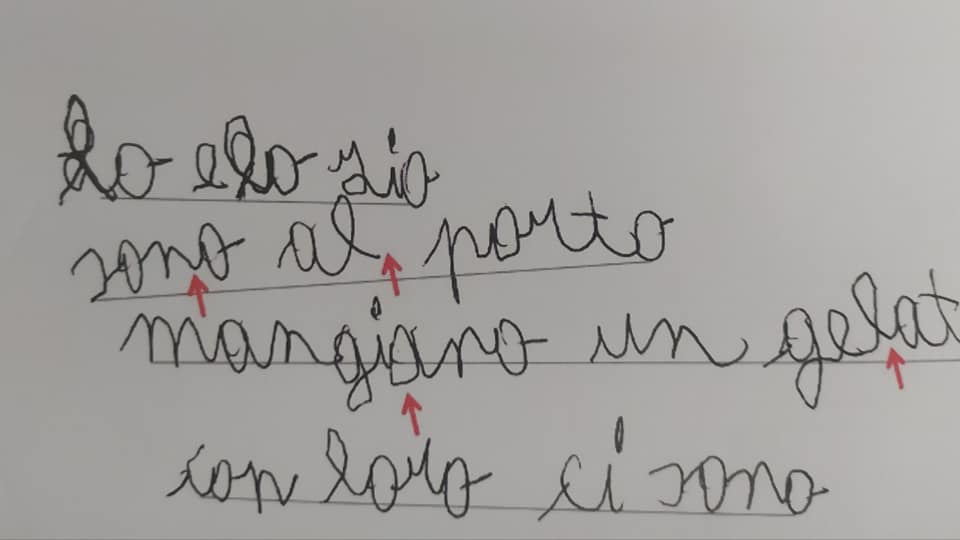 Lo e lo zio
sono al porto
mangiano un gelat
con loro ci sono